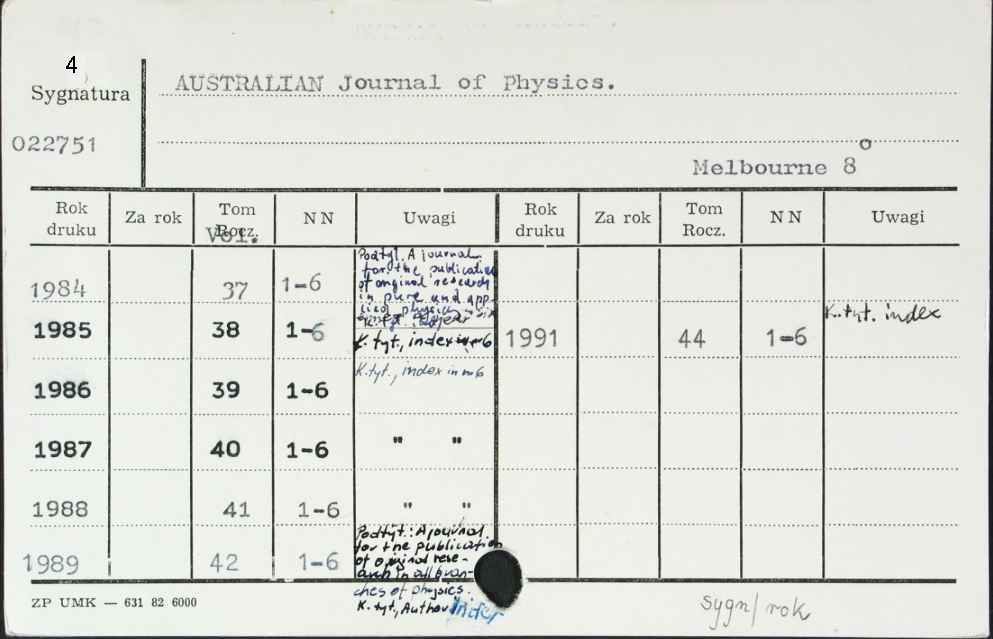 4
Sygnatura
022751
AUSTRALIAN Journal of Physics.
Melbourne 8°
Rok druku Za rok Tom Rocz. NN Uwagi Rok druku Za rok Tom Rocz. NN Uwagi
Vol.
1984 37 1-6
Podtyt. A journal
for the publication
of original research
in pure and app-
lied physics
1985 38 1-6 K. tyt., index w nr 6
1991 44 1-6 K. tyt. index
1986 39 1-6 K. tyt., index in nr 6
1987 40 1-6 " "
1988 41 1-6 " "
1989 42 1-6
Podtyt.: A journal
for the publication
of original rese-
arch in all bran-
ches of physics.
K. tyt., Author index
ZP UMK — 631 82 6000
sygn/rok